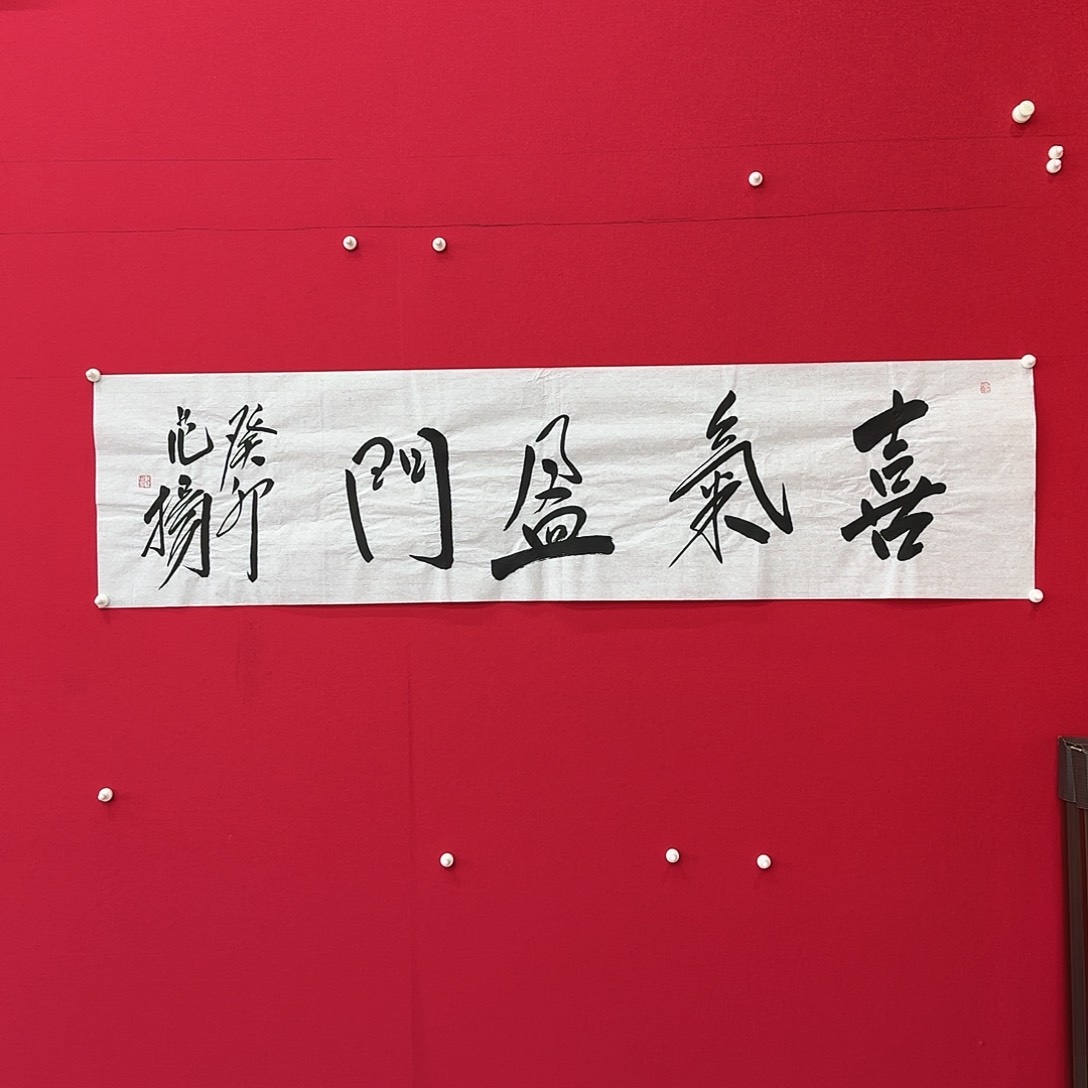 喜氣盈門
癸卯
范揚